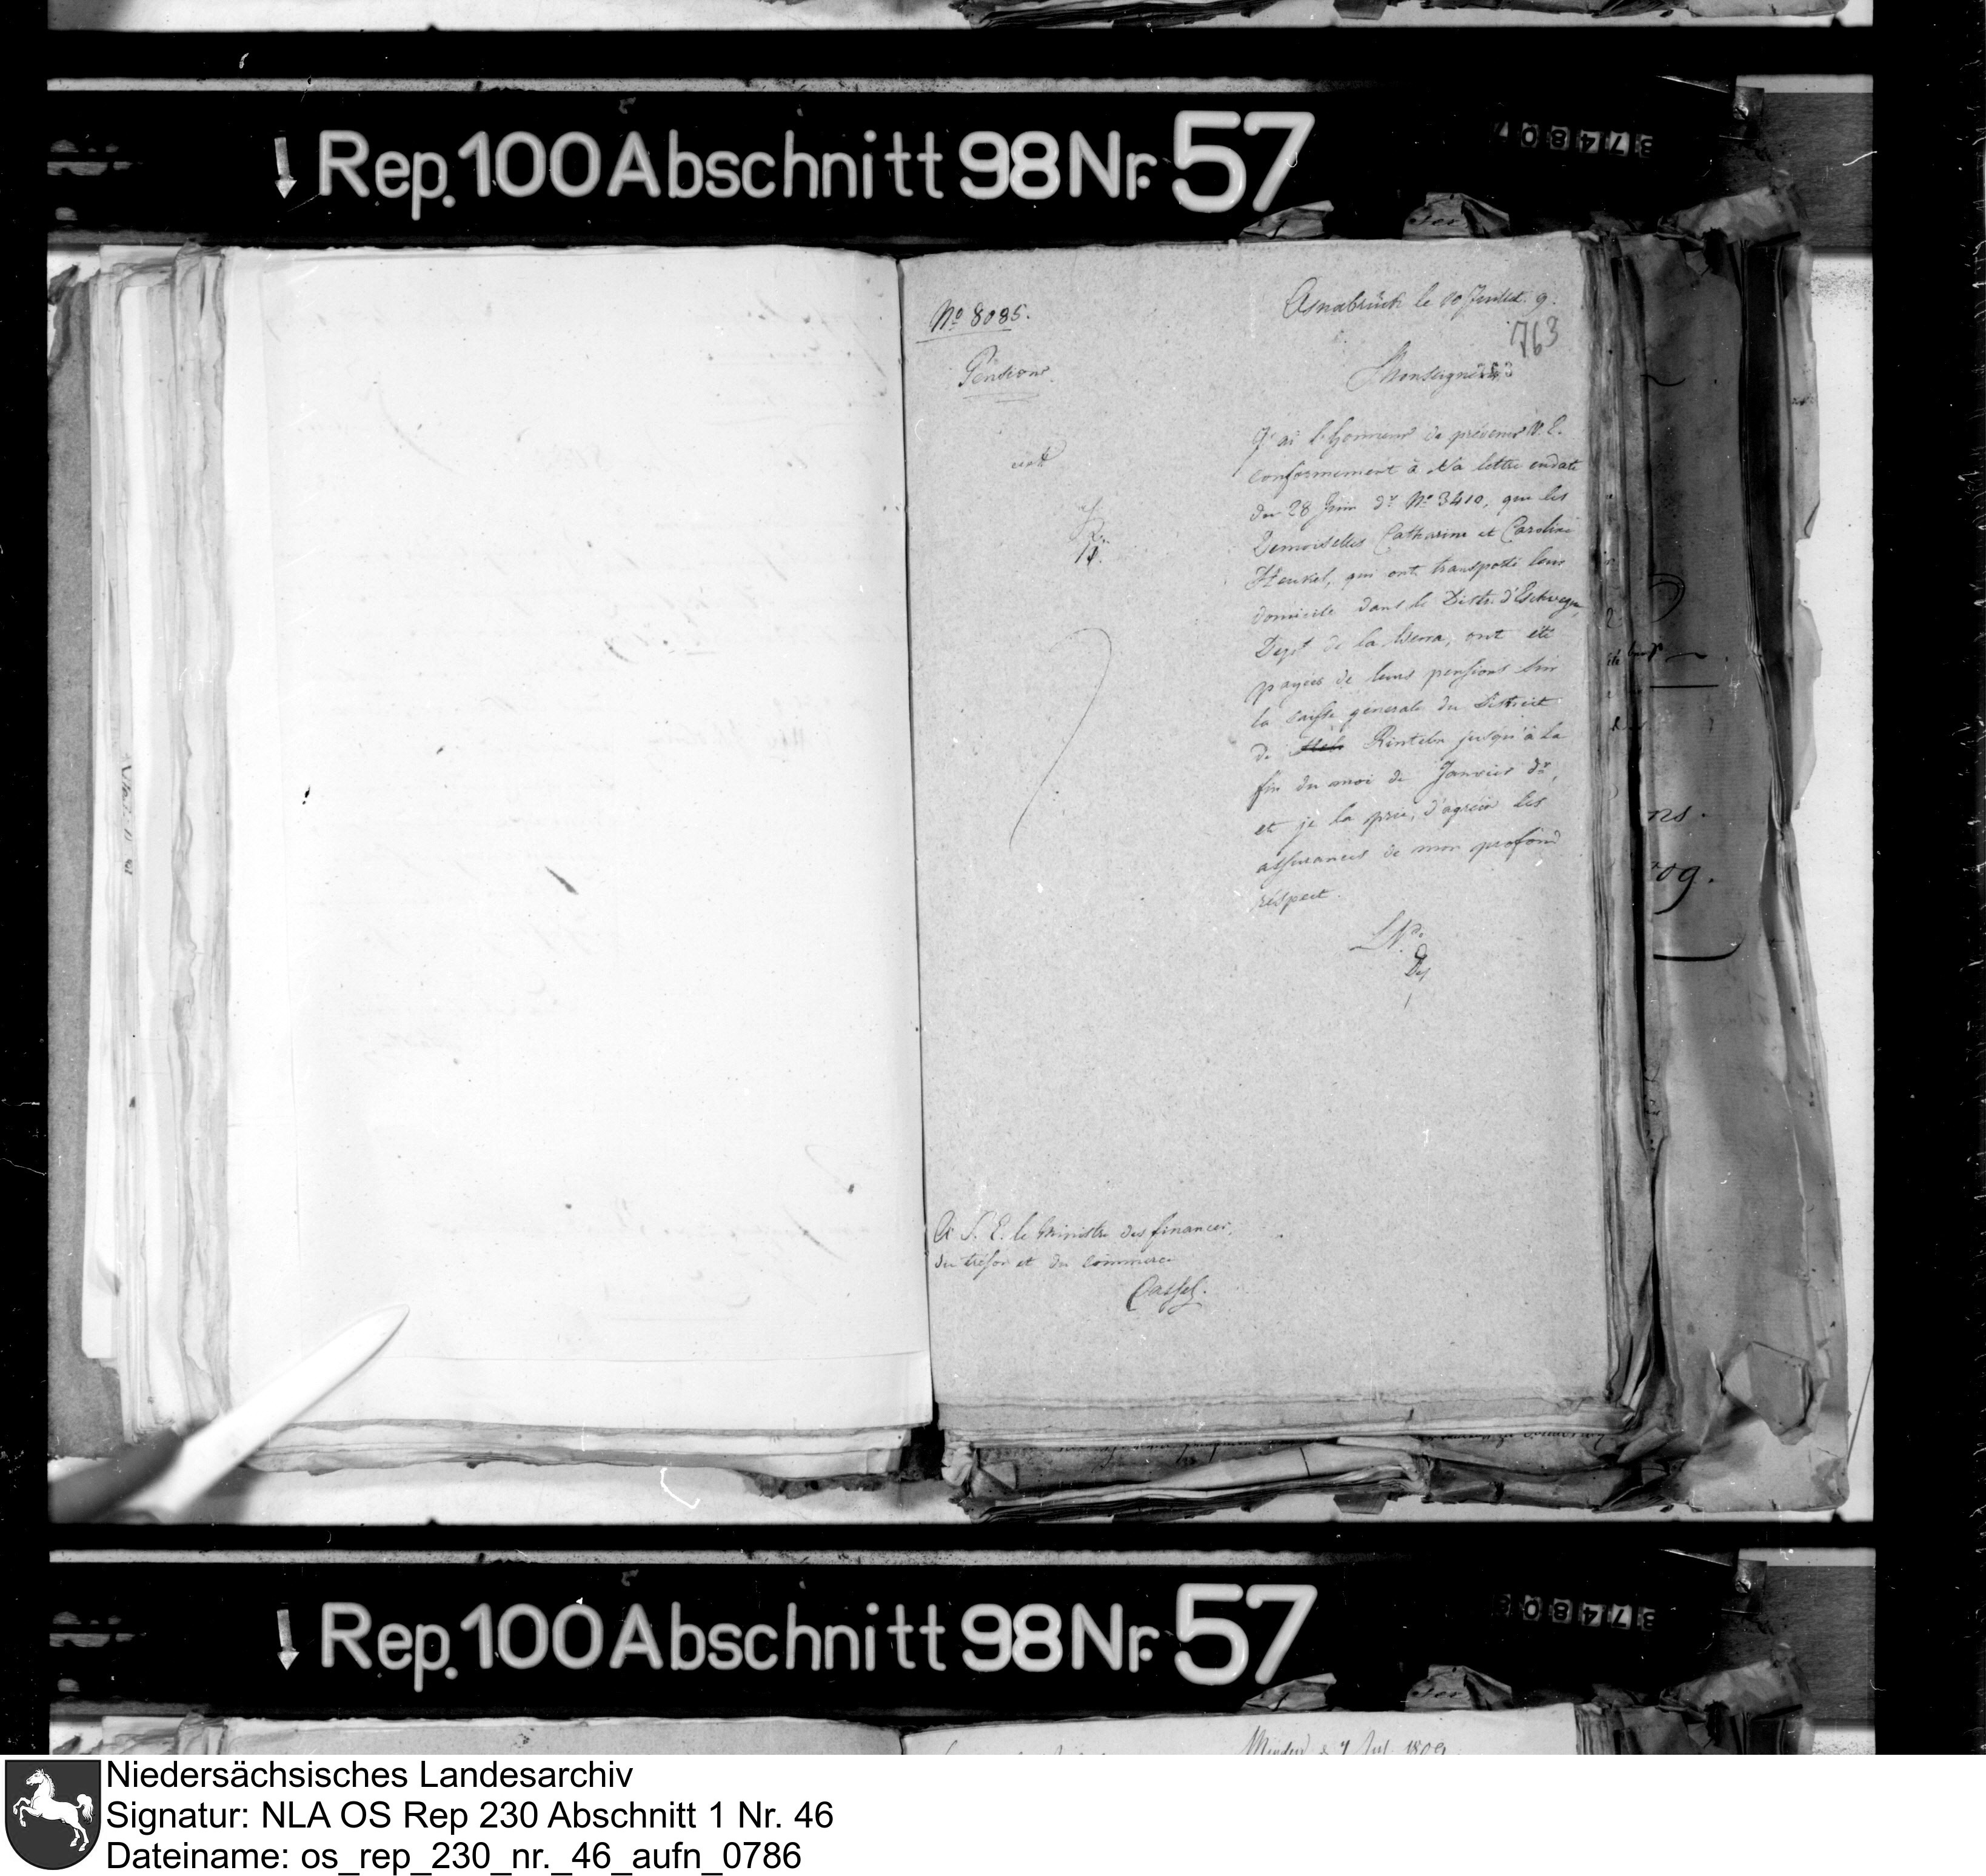 Rep. 100 Abschnitt 98 Nr. 57
No 8085.
Osnabrück le 10 Juillet 9.
763
Pensions
Monseigneur
J'ai l'honneur de prévenir V. E.
conformement à Sa lettre en date
du 28 Juin dr No 3410, que les
Demoiselles Catharine et Caroline
Henkel, qui ont transporté leur
domicile dans le Distr. d'Eschwege,
Dept de la Werra, ont été
payées de leurs pensions sur
la caisse génerale du District
de Rinteln jusqu'à la
fin du moi de Janvier dr,
et je la prie, d'agréer les
assurances de mon profond
réspect.
A S. E. le Ministre des finances,
du trésor et du commerce
Cassel.
Rep. 100 Abschnitt 98 Nr. 57
Niedersächsisches Landesarchiv
Signatur: NLA OS Rep 230 Abschnitt 1 Nr. 46
Dateiname: os_rep_230_nr._46_aufn_0786